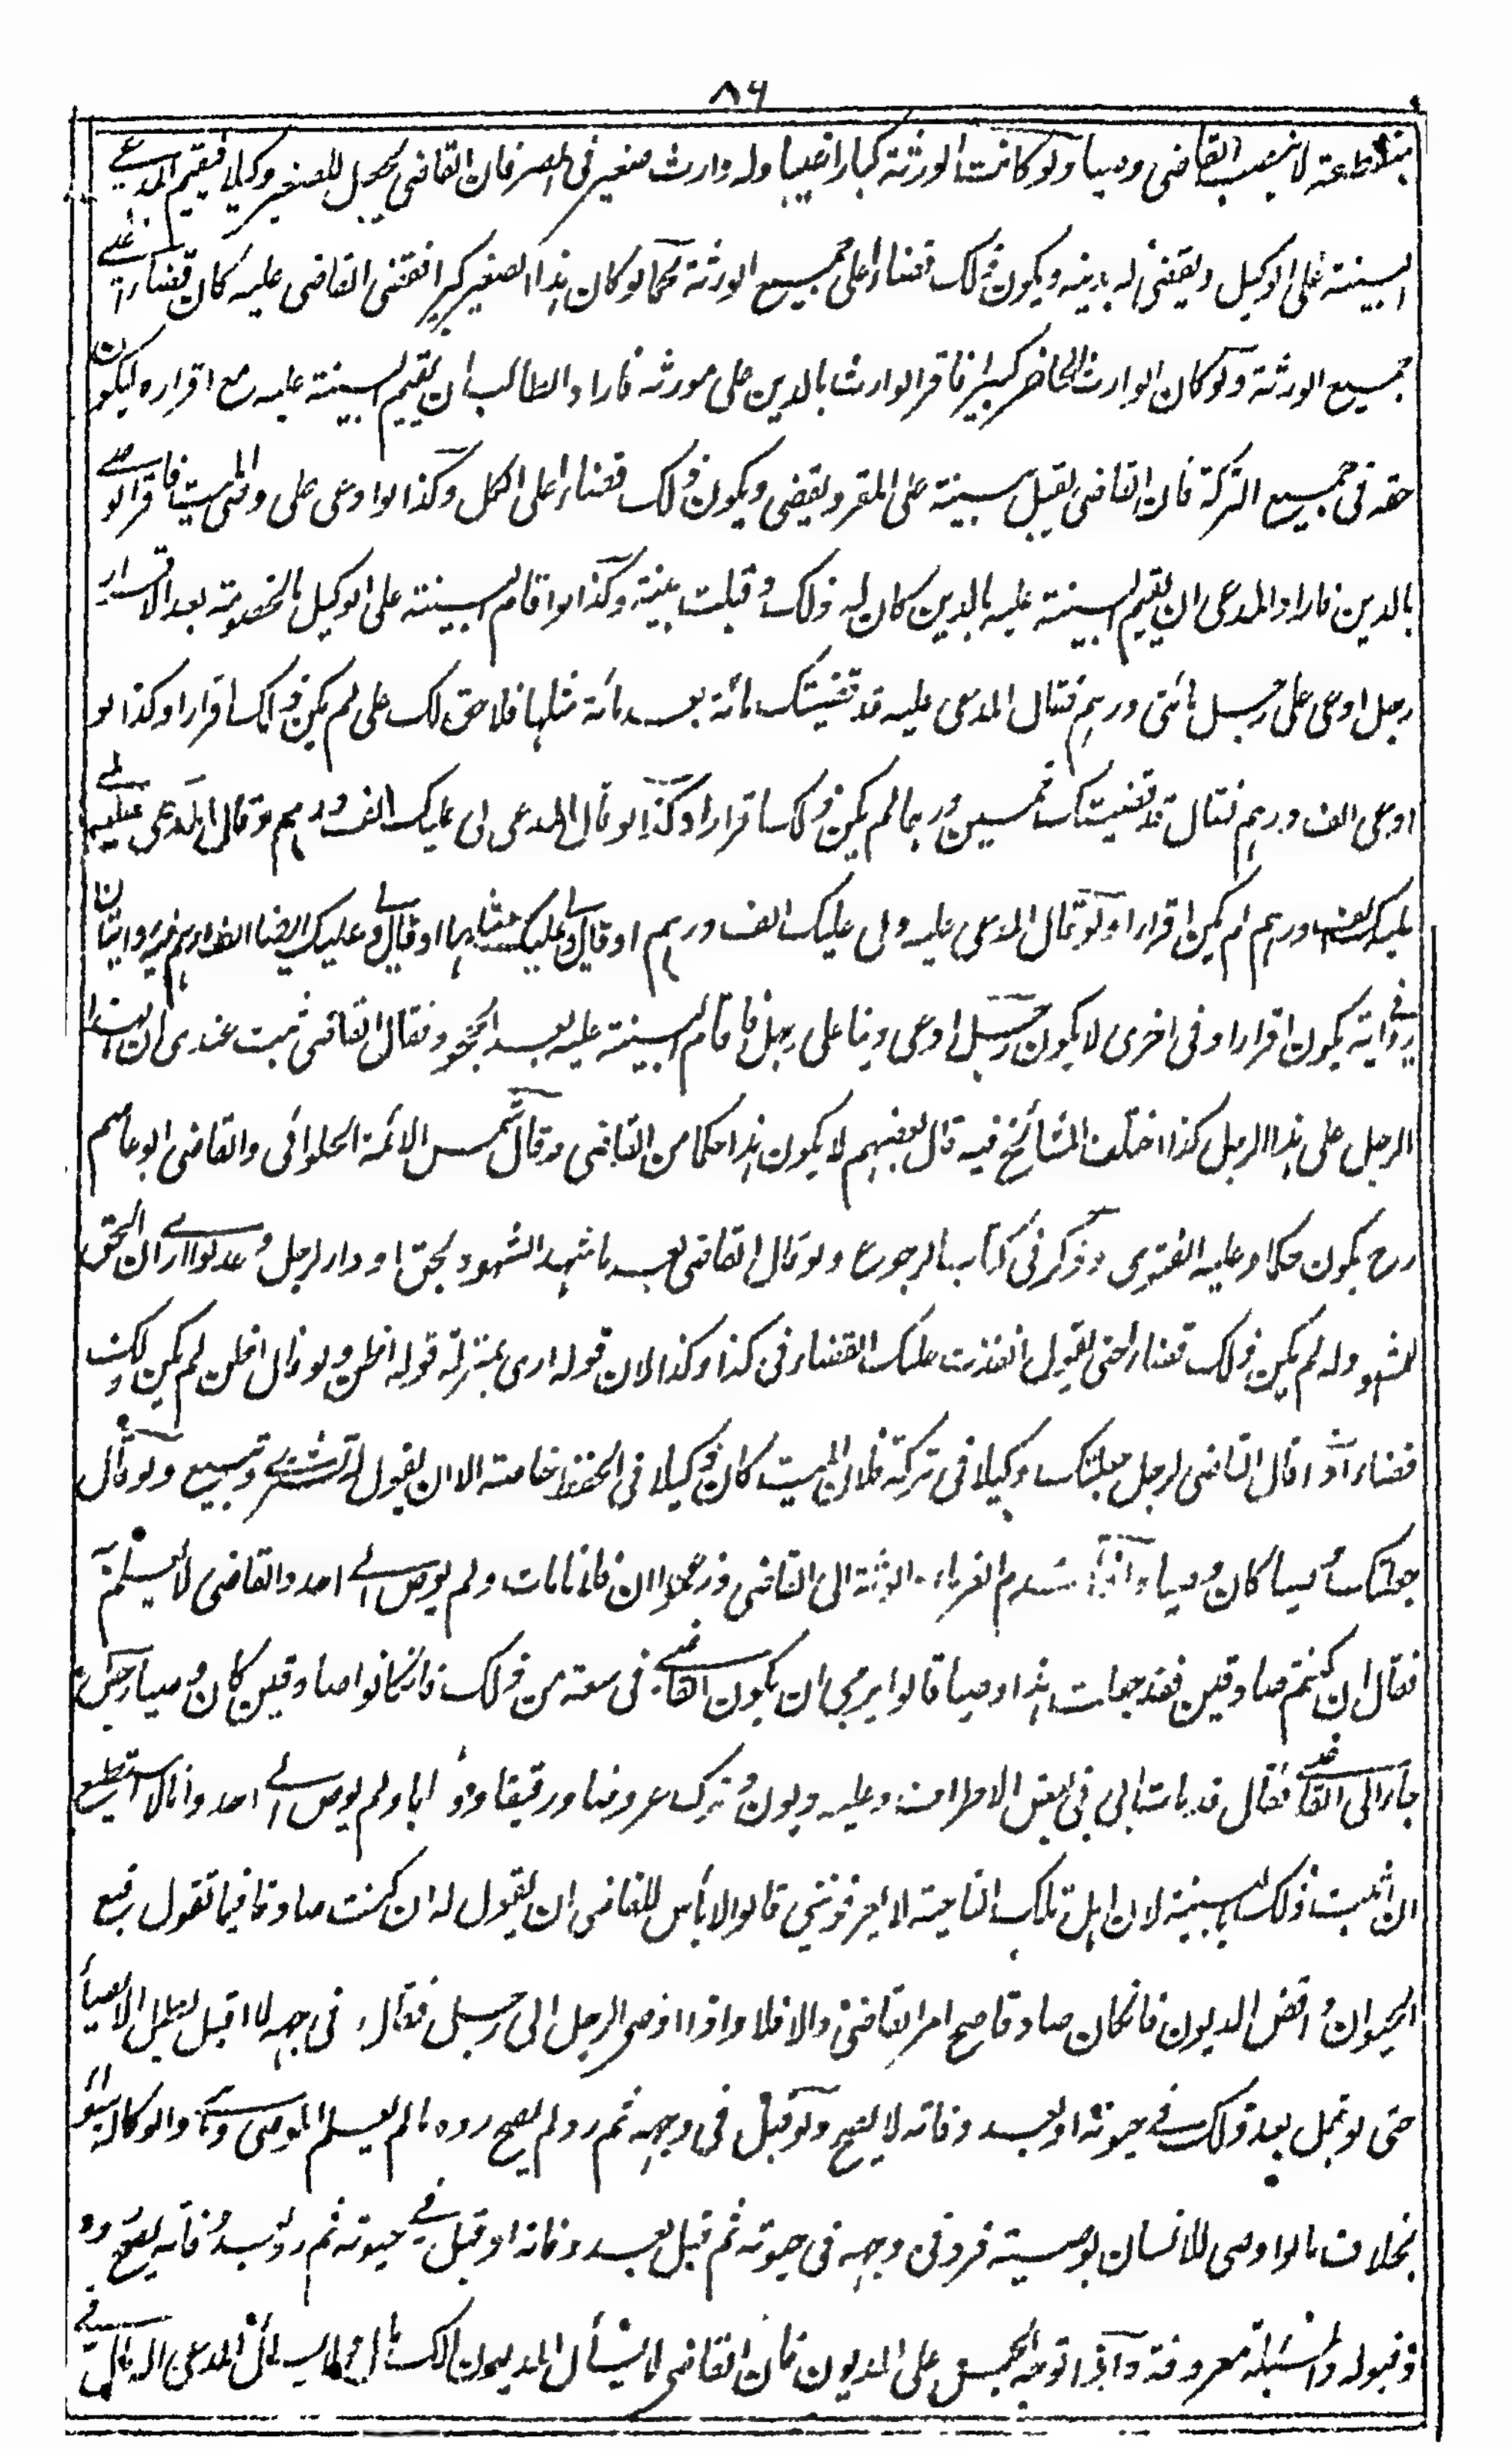 ٨٦
منقطعة لا ينصب القاضى وصيا ولو كانت الورثة كبارا غيبا وله وارث صغير فى المصر فان القاضى يجعل للصغير وكيلا فيقيم المدعى
البينة على الوكيل ويقضى له بدينه ويكون ذلك قضاء على جميع الورثة كما لو كان هذا الصغير كبيرا فقضى القاضى عليه كان قضاء على
جميع الورثة ولو كان الوارث الحاضر كبيرا فاقر الوارث بالدين على مورثه فاراد الطالب ان يقيم البينة عليه مع اقراره ليكون
حقه فى جميع التركة فان القاضى يقبل بينته على المقر ويقضى ويكون ذلك قضاء على الكل وكذا لو ادعى على وصى الميت فاقر الوصى
بالدين فاراد المدعى ان يقيم البينة عليه بالدين كان له ذلك وقبلت بينته وكذا لو اقام البينة على الوكيل بالخصومة بعد الاقرار
رجل ادعى على رجل مائتى درهم فقال المدعى عليه قد قضيتك مائة بعد مائة مثلها فلا حق لك على لم يكن ذلك اقرارا وكذا لو
ادعى الف درهم فقال قد قضيتك خمسين درهما لم يكن ذلك اقرارا وكذا لو قال المدعى لى عليك الف درهم وقال المدعى عليه لى
عليك الف درهم لم يكن اقرارا ولو قال المدعى عليه ولى عليك الف درهم او قال ولى عليك مثلها او قال ولى عليك ايضا الف درهم فيه روايتان
فى رواية يكون اقرارا وفى اخرى لا يكون رجل ادعى دينا على رجل فاقام البينة عليه بعد الجحود فقال القاضى ثبت عندى ان لهذا
الرجل على هذا الرجل كذا اختلف المشائخ فيه قال بعضهم لا يكون هذا حكما من القاضى وقال شمس الائمة الحلوائى والقاضى ابو عاصم
رح يكون حكما وعليه الفتوى وذكر فى كتاب الرجوع ولو قال القاضى بعد ما شهد الشهود بحق او دار لرجل وعدلوا ارى ان الحق
للمشهود له لم يكن ذلك قضاء حتى يقول انفذت عليك القضاء فى كذا وكذا لان قوله ارى بمنزلة قوله اظن ولو قال اظن لم يكن ذلك
قضاء واذا قال القاضى لرجل جعلتك وكيلا فى تركة فلان الميت كان وكيلا فى الحفظ خاصة الا ان يقول له تشترى وتبيع ولو قال
جعلتك وصيا كان وصيا واذا تقدم الغرماء والورثة الى القاضى وزعموا ان فلانا مات ولم يوص الى احد والقاضى لا يعلم
فقال ان كنتم صادقين فقد جعلت هذا وصيا قالوا يرجى ان يكون القاضى فى سعة من ذلك فان كانوا صادقين كان وصيا رجل
جاء الى القاضى فقال قد مات ابى فى بعض الاطراف وعليه ديون وترك عروضا ورقيقا ودوابا ولم يوص الى احد وانا لا استطيع
ان اثبت ذلك بالبينة لان اهل تلك الناحية لا يعرفوننى قالوا لا بأس للقاضى ان يقول له ان كنت صادقا فيما تقول بع
الحيوان واقض الديون فان كان صادقا صح امر القاضى والا فلا واذا اوصى الرجل الى رجل فقال فى وجهه لا اقبل بطل الايصاء
حتى لو قبل بعد ذلك فى حيوته او بعد وفاته لا يصح ولو قبل فى وجهه ثم رد لم يصح رده ما لم يعلم الموصى والوكالة سواء
بخلاف ما لو اوصى للانسان بوصية فرد فى وجهه فى حيوته ثم قبل بعد وفاته او قبل فى حيوته ثم رد بعد وفاته يصح رده
وقبوله والمسئلة معروفة واذا توجه الحبس على المديون فان القاضى لا يسأل المديون الك مال بل يسأل المدعى اله مال فى